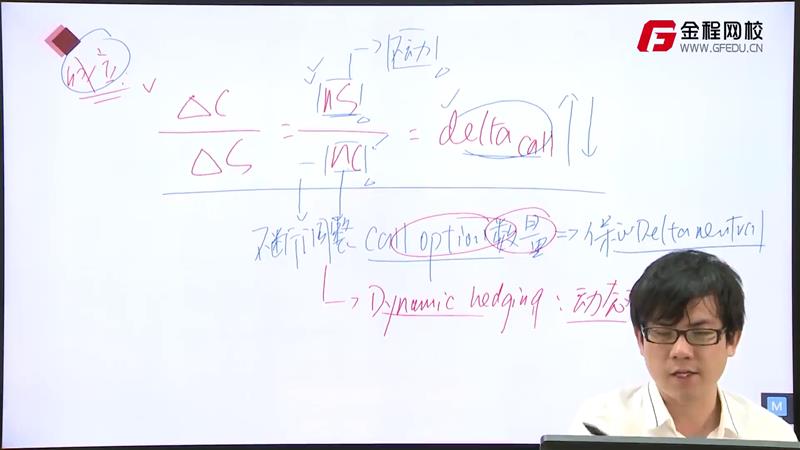 金程网校
WWW.GFEDU.CN
成立
ΔC / ΔS = |nS| / -|nC| = delta call ↑↓
→ |不动|
不断调整 call option 数量 => 保证Delta neutral
Dynamic hedging : 动态
M